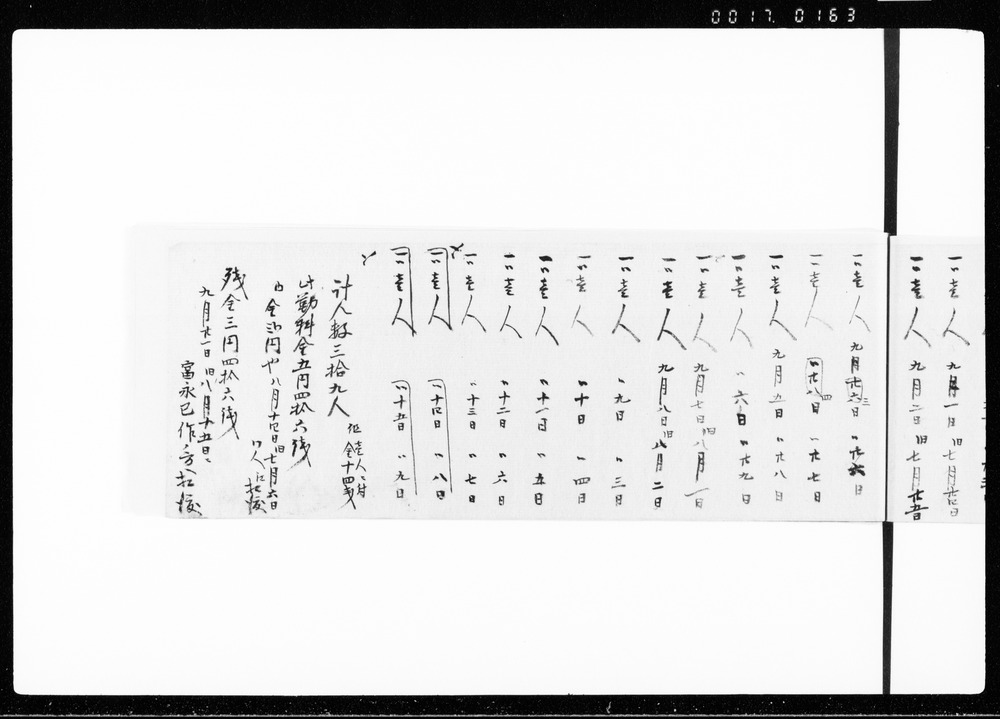 0017. 0163
一〃壱人 九月一日 旧七月廿四日
一〃壱人 九月二日 旧七月廿五日
一〃壱人 九月三日 〃廿六日
一〃壱人 〃四日 〃廿七日
一〃壱人 九月五日 〃廿八日
一〃壱人 〃六日 〃廿九日
一〃壱人 九月七日 旧八月一日
一〃壱人 九月八日 旧八月二日
一〃壱人 〃九日 〃三日
一〃壱人 〃十日 〃四日
一〃壱人 〃十一日 〃五日
一〃壱人 〃十二日 〃六日
一〃壱人 〃十三日 〃七日
一〃壱人 〃十四日 〃八日
一〃壱人 〃十五日 〃九日
計人数三拾九人 但壱人ニ付金十四銭
此勤料金五円四拾六銭
内金弐円也八月十四日旧七月六日
〃人江払渡
残金三円四拾六銭
九月廿一日旧八月十五日ニ
富永已作ノ方払渡